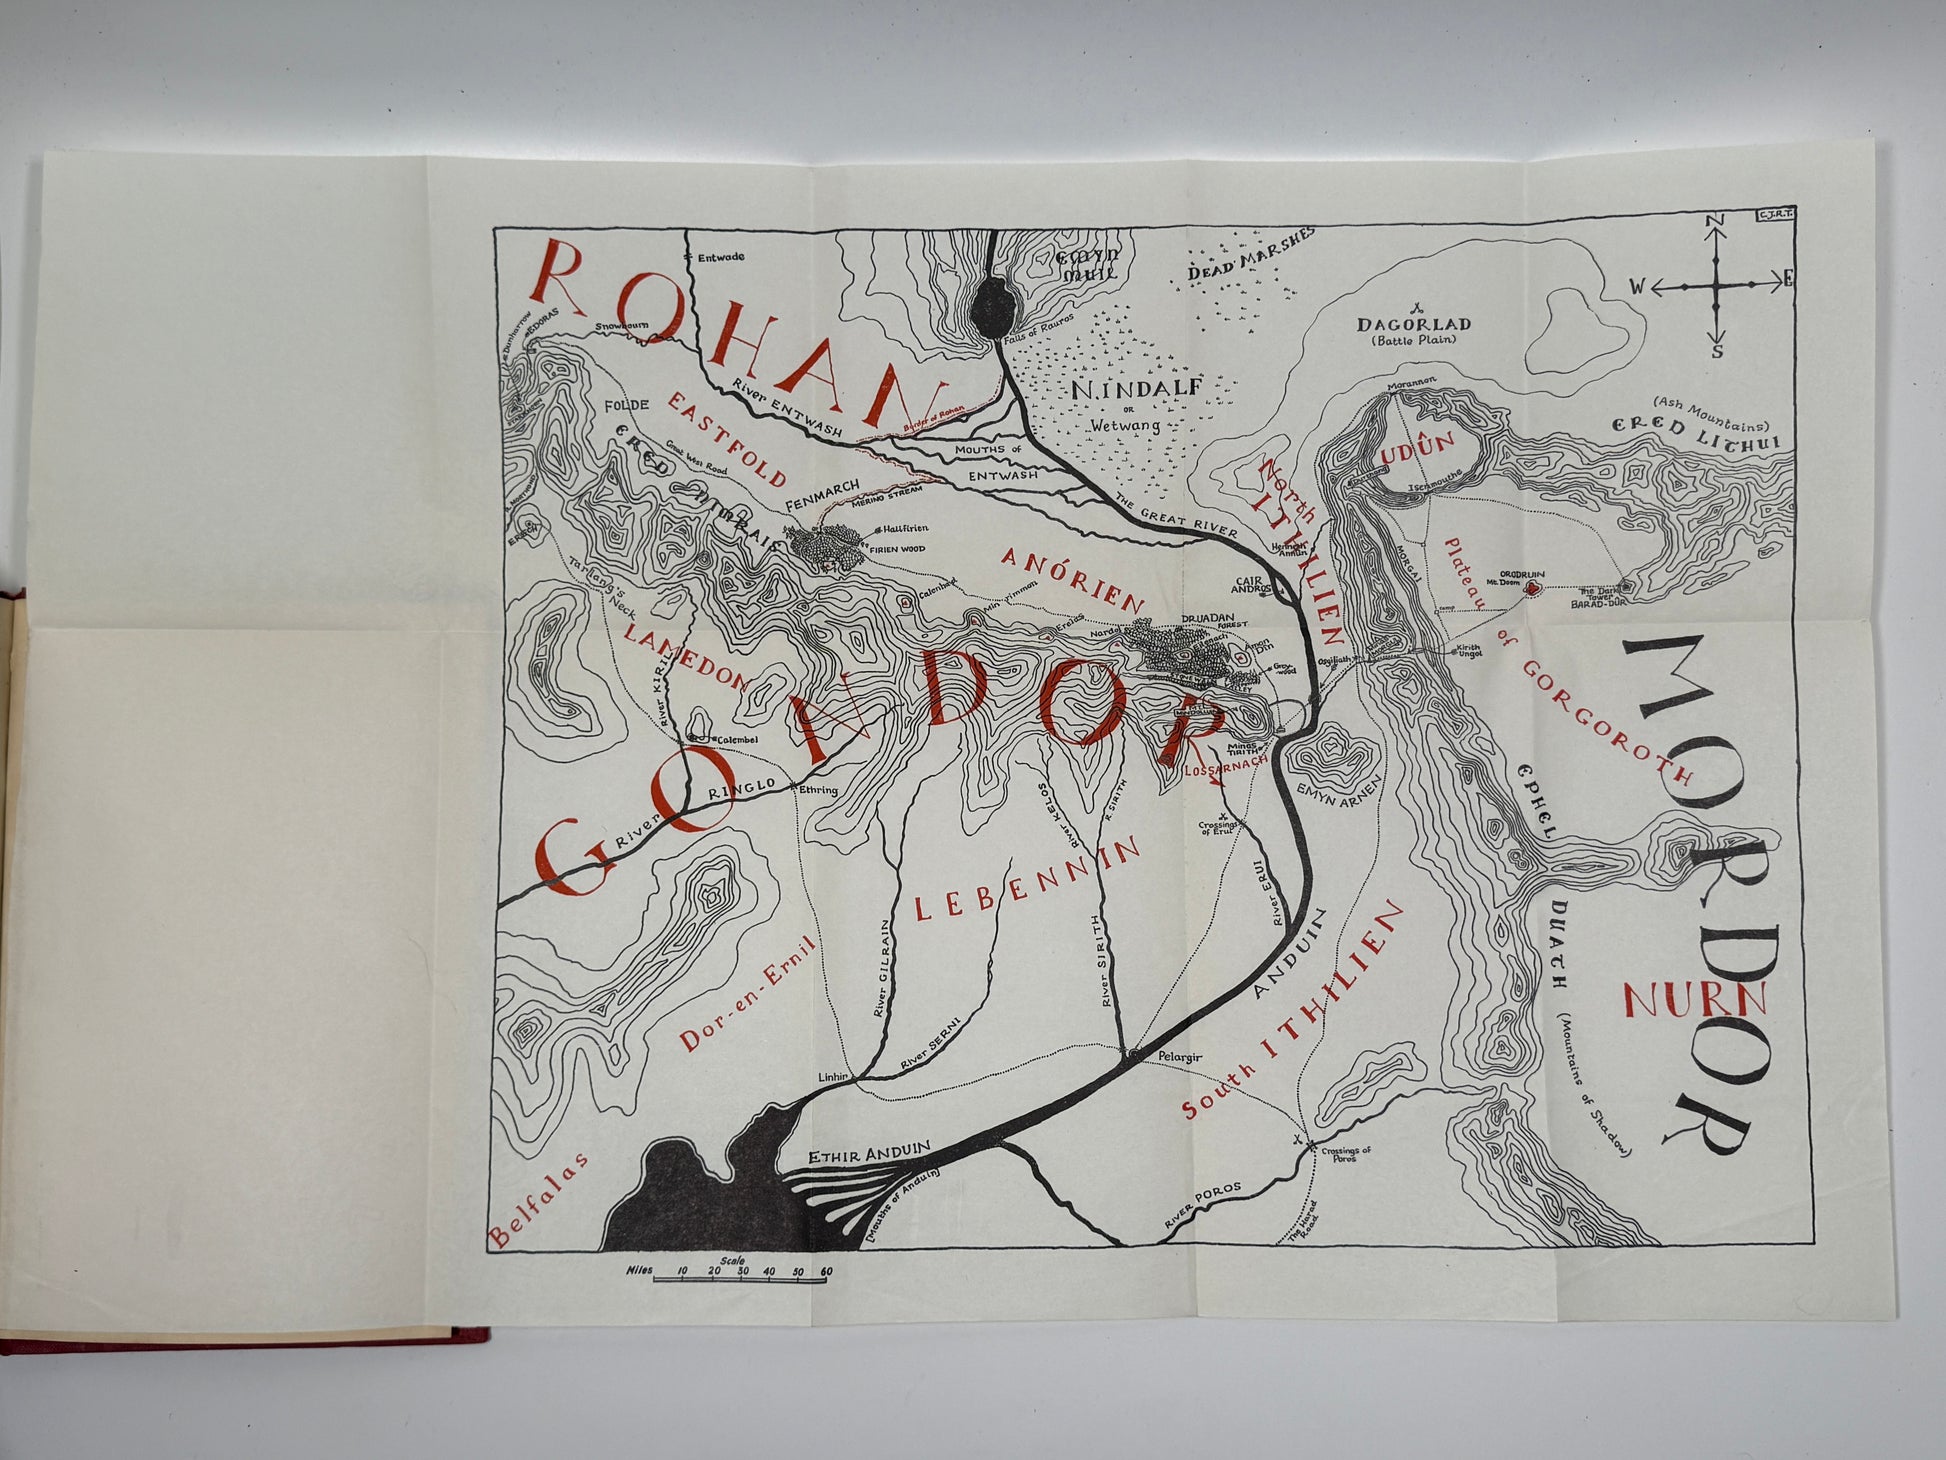 C.J.R.T.
N
W
E
S
ROHAN
Entwade
EMYN
MUIL
DEAD MARSHES
DAGORLAD
(Battle Plain)
Dunharrow
EDORAS
Snowbourn
Falls of Rauros
NINDALF
OR
Wetwang
Morannon
(Ash Mountains)
ERED LITHUI
FOLDE
EASTFOLD
River ENTWASH
Border of Rohan
MOUTHS of
ENTWASH
UDÛN
Isenmouthe
ERED
NIMRAIS
Great West Road
FENMARCH
MERING STREAM
THE GREAT RIVER
North
ITHILIEN
Henneth
Annûn
ERECH
Halifirien
FIRIEN WOOD
ANÓRIEN
CAIR
ANDROS
MORGAI
Plateau
of GORGOROTH
ORODRUIN
Mt. Doom
The Dark
Tower
BARAD-DÛR
Tarlang's
Neck
Calenhad
Min-Rimmon
Erelas
Nardol
DRUADAN
FOREST
Amon
Dîn
Grey-
wood
Osgiliath
Kirith
Ungol
LAMEDON
River KIRIL
Calembel
GONDOR
Minas
TIRITH
LOSSARNACH
EMYN ARNEN
MORDOR
River RINGLO
Ethring
River KELOS
R. SIRITH
Crossings
of Erui
River ERUI
LEBENNIN
EPHEL
DUATH
(Mountains of Shadow)
NURN
Dor-en-Ernil
River GILRAIN
River SERNI
River SIRITH
ANDUIN
South ITHILIEN
Linhir
Pelargir
Belfalas
ETHIR ANDUIN
(Mouths of Anduin)
RIVER POROS
Crossings of
Poros
The Harad
Road
Scale
Miles 10 20 30 40 50 60